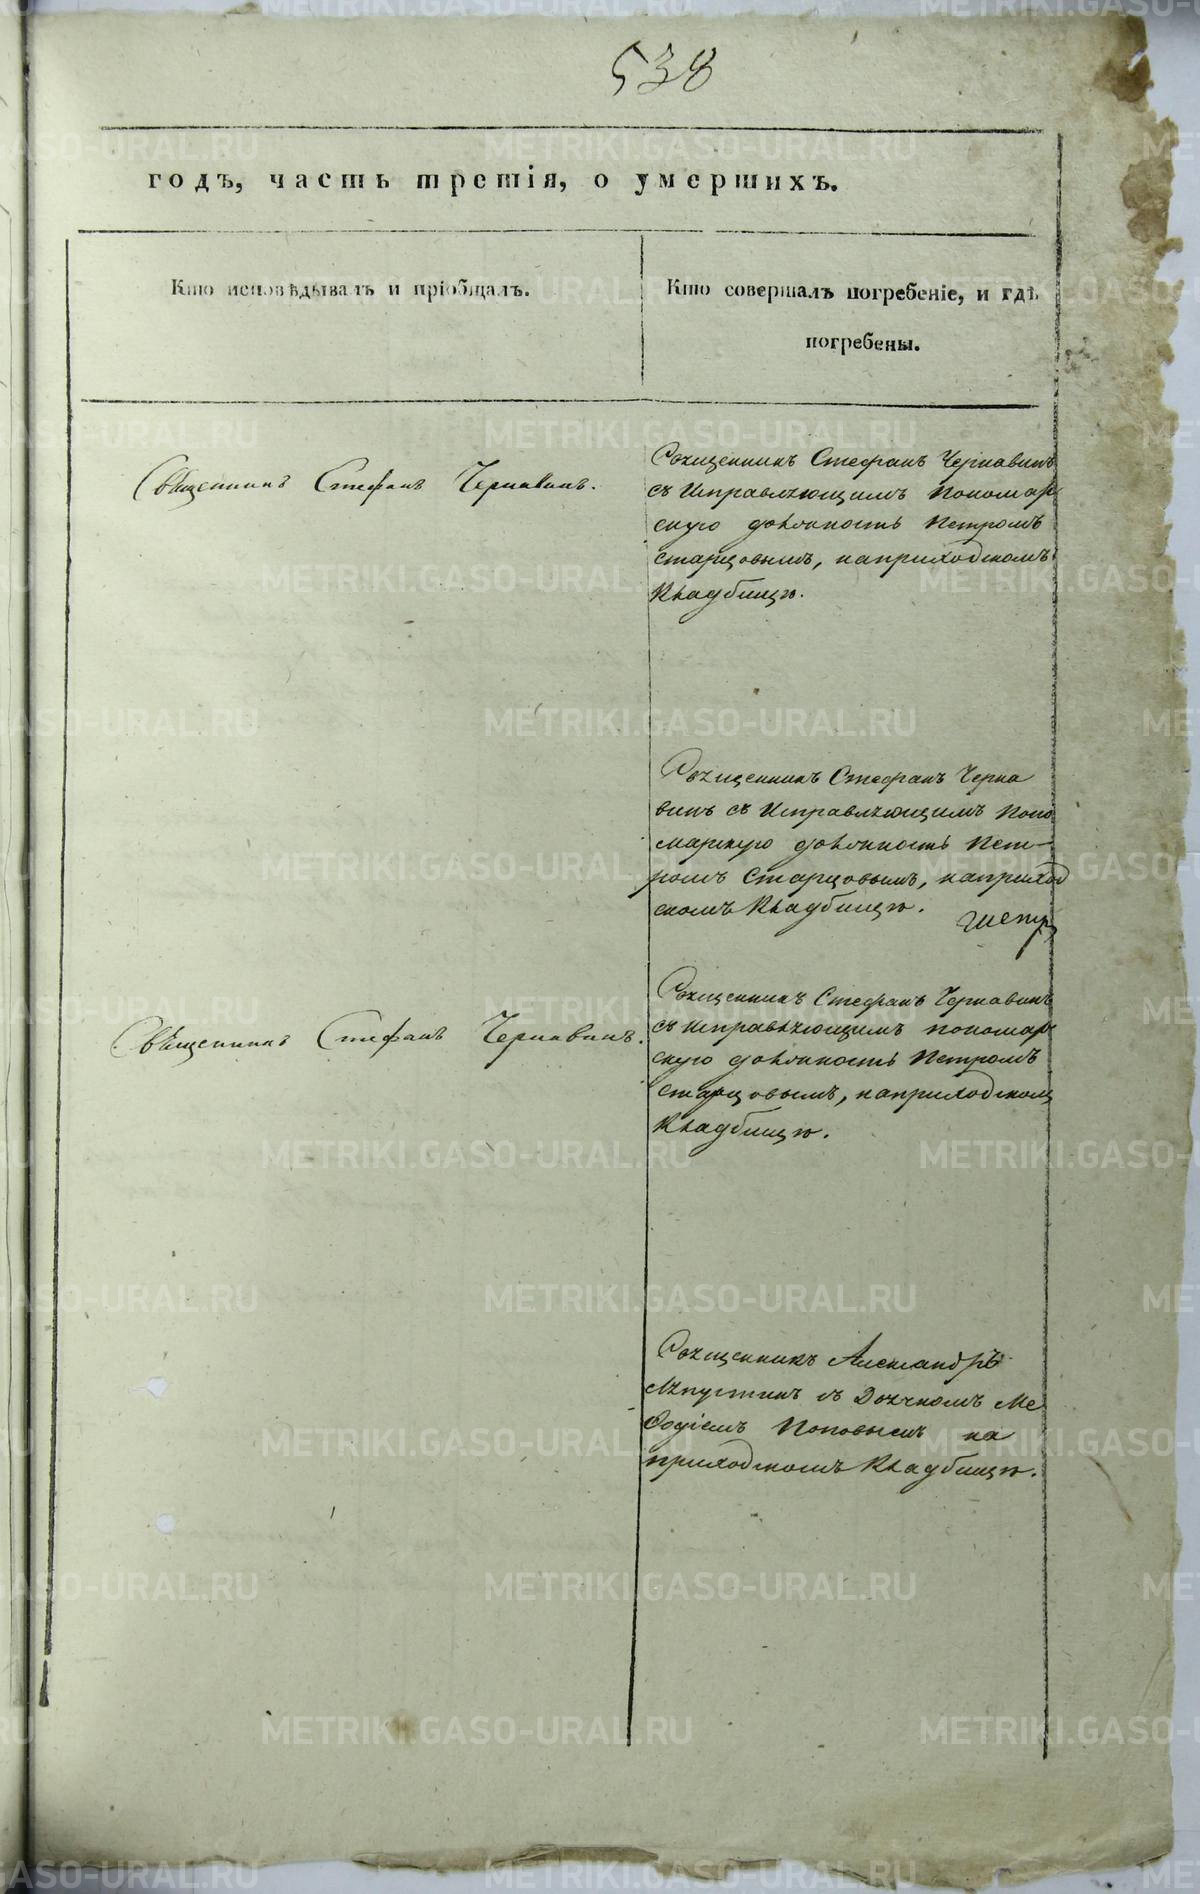 538
годъ, часть третія, о умершихъ.
Кто исповѣдывалъ и пріобщалъ.
Кто совершалъ погребеніе, и гдѣ
погребены.
Священникъ Стефанъ Чернавинъ.
Священникъ Стефанъ Чернавинъ
съ Исправляющимъ пономар
скую должность Петромъ
старцовымъ, наприходскомъ
Кладбищѣ.
Священникъ Стефанъ Черна
винъ съ Исправляющимъ Поно
марскую должность Пет-
ромъ Старцовымъ, наприход
скомъ Кладбищѣ.
Священникъ Стефанъ Чернавинъ.
Священникъ Стефанъ Чернавинъ
съ исправляющимъ пономар
скую должность Петромъ
старцовымъ, наприходском
Кладбищѣ.
Священникъ Александръ
Ляпустинъ съ Дьячкомъ Ме
ѳодіемъ Поповымъ на
приходскомъ Кладбищѣ.
METRIKI.GASO-URAL.RU